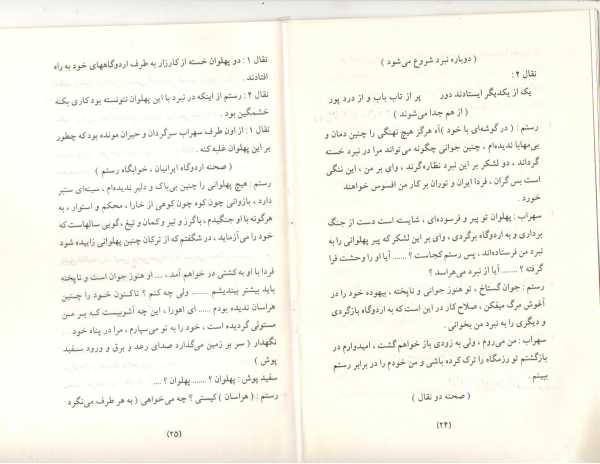 ( دوباره نبرد شروع می‌شود )
نقال ۲ :
یک از یکدیگر ایستادند دور      پر از تاب باب و از درد پور
( از هم جدا می‌شوند )
رستم : ( در گوشه‌ای با خود )آه هرگز هیچ نهنگی را چنین دمان و
بی‌مهابا ندیده‌ام ، چنین جوانی چگونه می‌تواند مرا در نبرد خسته
گرداند ، دو لشکر بر این نبرد نظاره‌گرند ، وای بر من ، این ننگی
است بس گران ، فردا ایران و توران بر کار من افسوس خواهند
خورد .
سهراب : پهلوان تو پیر و فرسوده‌ای ، شایسته است دست از جنگ
برداری و به اردوگاه برگردی ، وای بر این لشکر که پیر پهلوانی را به
نبرد من فرستاده‌اند ، پس رستم کجاست ؟ ...... آیا او را وحشت فرا
گرفته ؟ ....... آیا از نبرد می‌هراسد ؟
رستم : جوان گستاخ ، تو هنوز جوانی و ناپخته ، بیهوده خود را در
آغوش مرگ میفکن ، صلاح کار در این است که به اردوگاه بازگردی
و دیگری را به نبرد من بخوانی .
سهراب : من می‌روم ، ولی به زودی باز خواهم گشت ، امیدوارم در
بازگشتم تو رزمگاه را ترک کرده باشی و من خودم را در برابر رستم
ببینم .
( صحنه دو نقال )
(۲۴)
نقال ۱ : دو پهلوان خسته از کارزار به طرف اردوگاههای خود به راه
افتادند .
نقال ۲ : رستم از اینکه در نبرد با این پهلوان نتونسته بود کاری بکنه
خشمگین بود .
نقال ۱ : از اون طرف سهراب سرگردان و حیران مونده بود که چطور
بر این پهلوان غلبه کنه .
( صحنه اردوگاه ایرانیان ، خوابگاه رستم )
رستم : هیچ پهلوانی را چنین بی‌باک و دلیر ندیده‌ام ، سینه‌ای ستبر
دارد ، بازوانی چون کوه چون کوهی از خارا ، محکم و استوار ، به
هرگونه با او جنگیدم ، باگرز و تیر و کمان و تیغ ، گویی سالهاست که
خود را می‌آزماید ، در شگفتم که از ترکان چنین پهلوانی زاییده شود
فردا با او به کشتی در خواهم آمد ، .... او هنوز جوان است و ناپخته
باید بیشتر بیندیشم ........ ولی چه کنم ؟ تاکنون خود را چنین
هراسان ندیده بودم ..... ای اهورا ، این چه آشوبیست کـه بـر مـن
مستولی گردیده است ، خود را به تو می‌سپارم ، مرا در پناه خود
نگهدار ( سر بر زمین می‌گذارد صدای رعد و برق و ورود سـفید
پوش )
سفید پوش : پهلوان ؟ ....... پهلوان ؟ ....
رستم : ( هراسان ) کیستی ؟ چه می‌خواهی ( به هر طرف می‌نگرد
(۲۵)